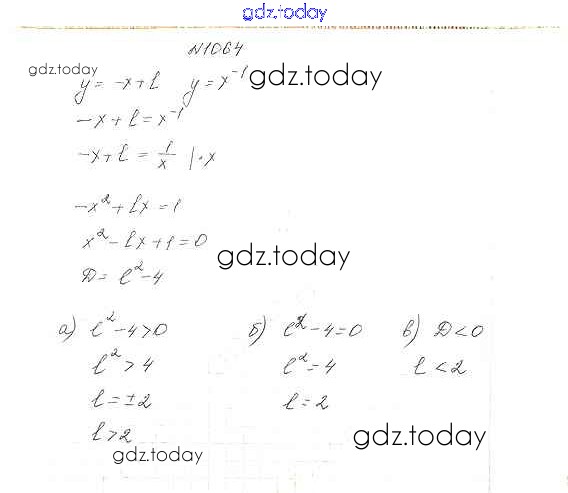 gdz.today
N1064
gdz.today
y = -x+l y = x^-1 gdz.today
-x+l = x^-1
-x+l = 1/x |·x
-x^2+lx=1
x^2-lx+1=0
gdz.today
D= l^2-4
а) l^2-4>0 б) l^2-4=0 в) D<0
l^2>4 l^2=4 l<2
l=±2 l=2
l>2
gdz.today gdz.today